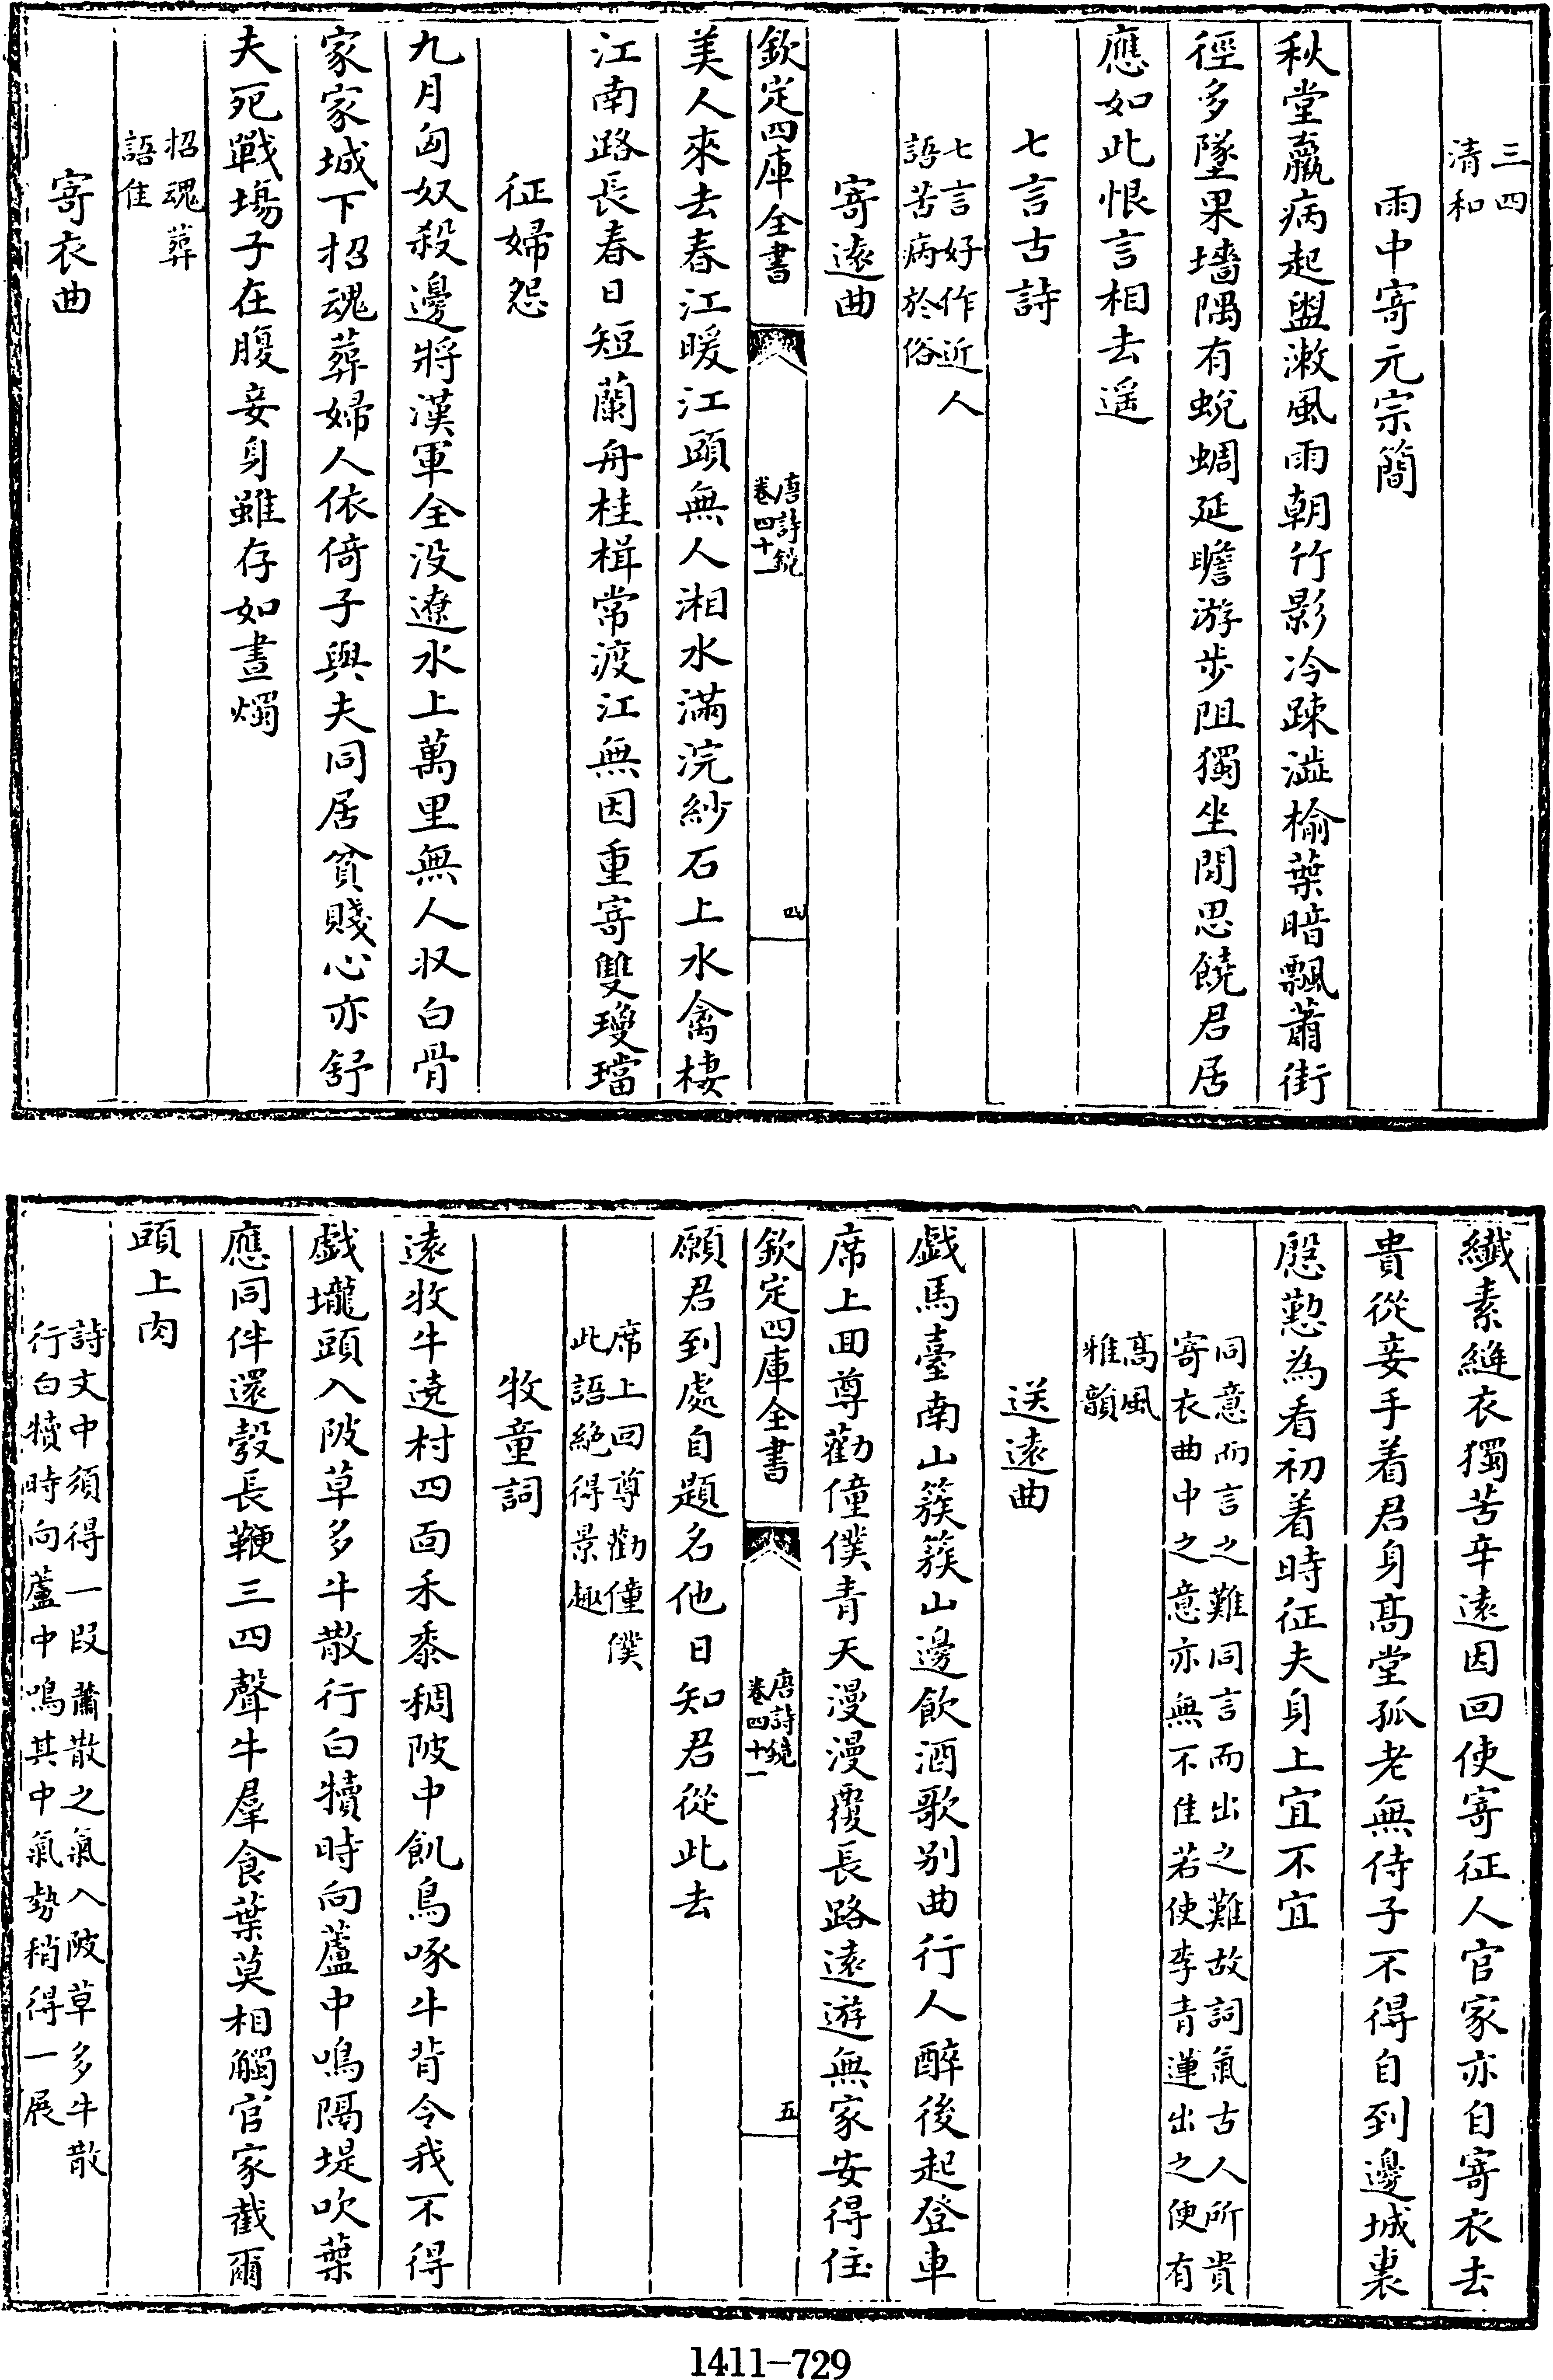 三四
清和
雨中寄元宗簡
秋堂羸病起盥漱風雨朝竹影冷疎澁榆葉暗飄蕭街
徑多墜果墻隅有蛻蜩延瞻游步阻獨坐閒思饒君居
應如此恨言相去遥
七言古詩
七言好作近人
語苦病於俗
寄逺曲
欽定四庫全書
唐詩鏡
卷四十一
四
美人來去春江暖江頭無人湘水滿浣紗石上水禽棲
江南路長春日短蘭舟桂楫常渡江無因重寄雙瓊璫
征婦怨
九月匈奴殺邊將漢軍全没遼水上萬里無人収白骨
家家城下招魂葬婦人依倚子與夫同居貧賤心亦舒
夫死戰塲子在腹妾身雖存如晝燭
招魂葬
語佳
寄衣曲
纎素縫衣獨苦辛逺因回使寄征人官家亦自寄衣去
貴從妾手着君身髙堂孤老無侍子不得自到邊城裏
慇懃為看初着時征夫身上宜不宜
同意而言之難同言而出之難故詞氣古人所貴
寄衣曲中之意亦無不佳若使李青蓮出之便有
髙風
雅韻
送逺曲
戲馬臺南山簇簇山邊飲酒歌别曲行人醉後起登車
席上回尊勸僮僕青天漫漫覆長路逺遊無家安得住
欽定四庫全書
唐詩鏡
卷四十一
五
願君到處自題名他日知君從此去
席上回尊勸僮僕
此語絶得景趣
牧童詞
逺牧牛遶村四面禾黍稠陂中飢鳥啄牛背令我不得
戯壠頭入陂草多牛散行白犢時向蘆中鳴隔堤吹葉
應同伴還鼓長鞭三四聲牛羣食葉莫相觸官家截爾
頭上肉
詩文中須得一段蕭散之氣入陂草多牛散
行白犢時向蘆中鳴其中氣勢稍得一展
1411-729